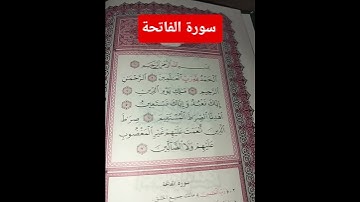 سورة الفاتحة
بسم الله الرحمن الرحيم
الحمد لله رب العالمين الرحمن
الرحيم مالك يوم الدين
إياك نعبد وإياك نستعين
اهدنا الصراط المستقيم صراط
الذين أنعمت عليهم غير المغضوب
عليهم ولا الضالين
سورة الفاتحة